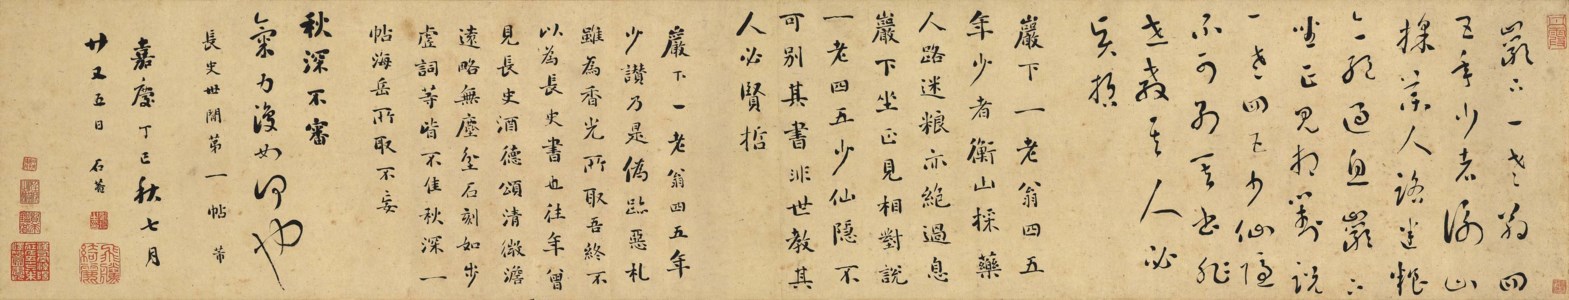 巖下一老翁四
五年少者衡山
採藥人路迷粮
亦絕過息巖下
坐正見相對說
一老四五少仙隱
不可別其書非
世教其人必
賢哲
巖下一老翁四五
年少者衡山採藥
人路迷粮亦絕過息
巖下坐正見相對說
一老四五少仙隱不
可別其書非世教其
人必賢哲
巖下一老翁四五年
少讚乃是偽跡惡札
雖為香光所取吾終不
以為長史書也往年曾
見長史酒德頌清微澹
遠略無塵坌石刻如步
虛詞等皆不佳秋深一
帖海岳所取不妄
秋深不審
氣力復如何也
長史世間第一帖 芾
嘉慶丁巳秋七月
廿又五日 石菴